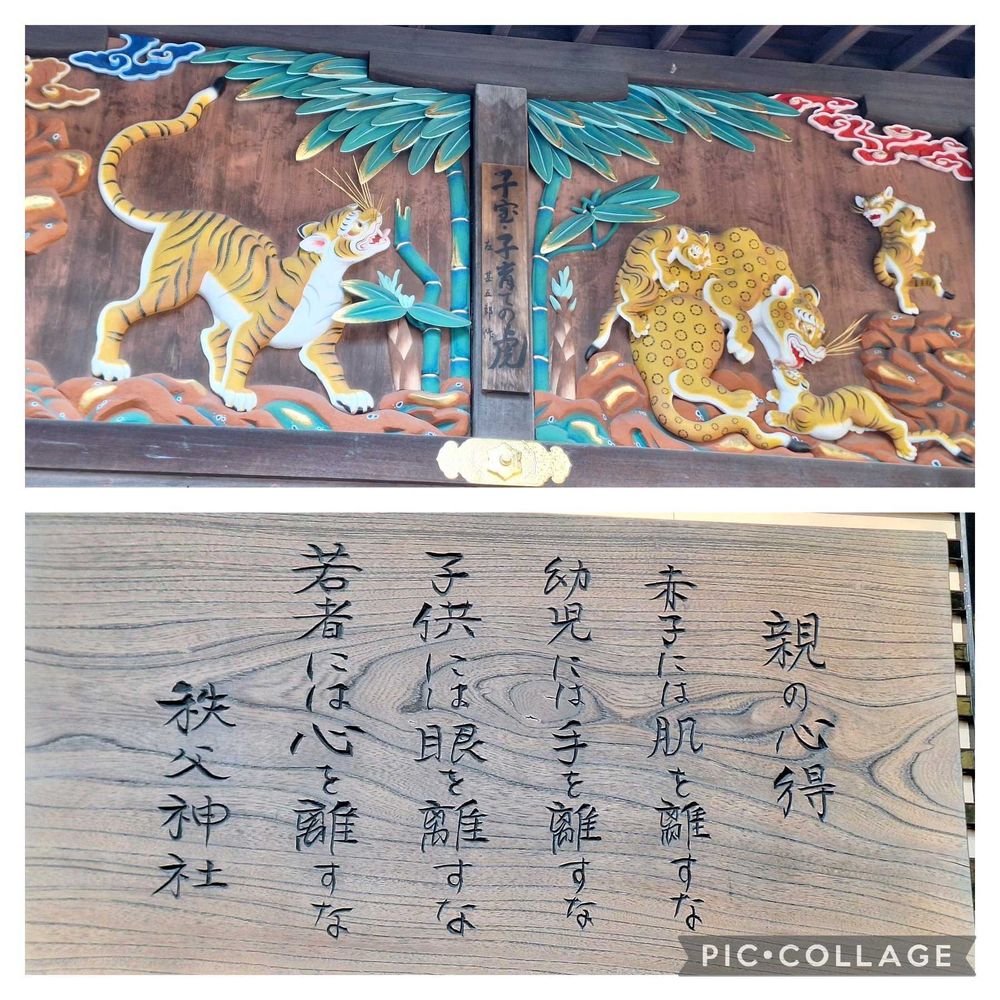 子宝・子育ての虎
左甚五郎作
親の心得
赤子には肌を離すな
幼児には手を離すな
子供には眼を離すな
若者には心を離すな
秩父神社
PIC•COLLAGE